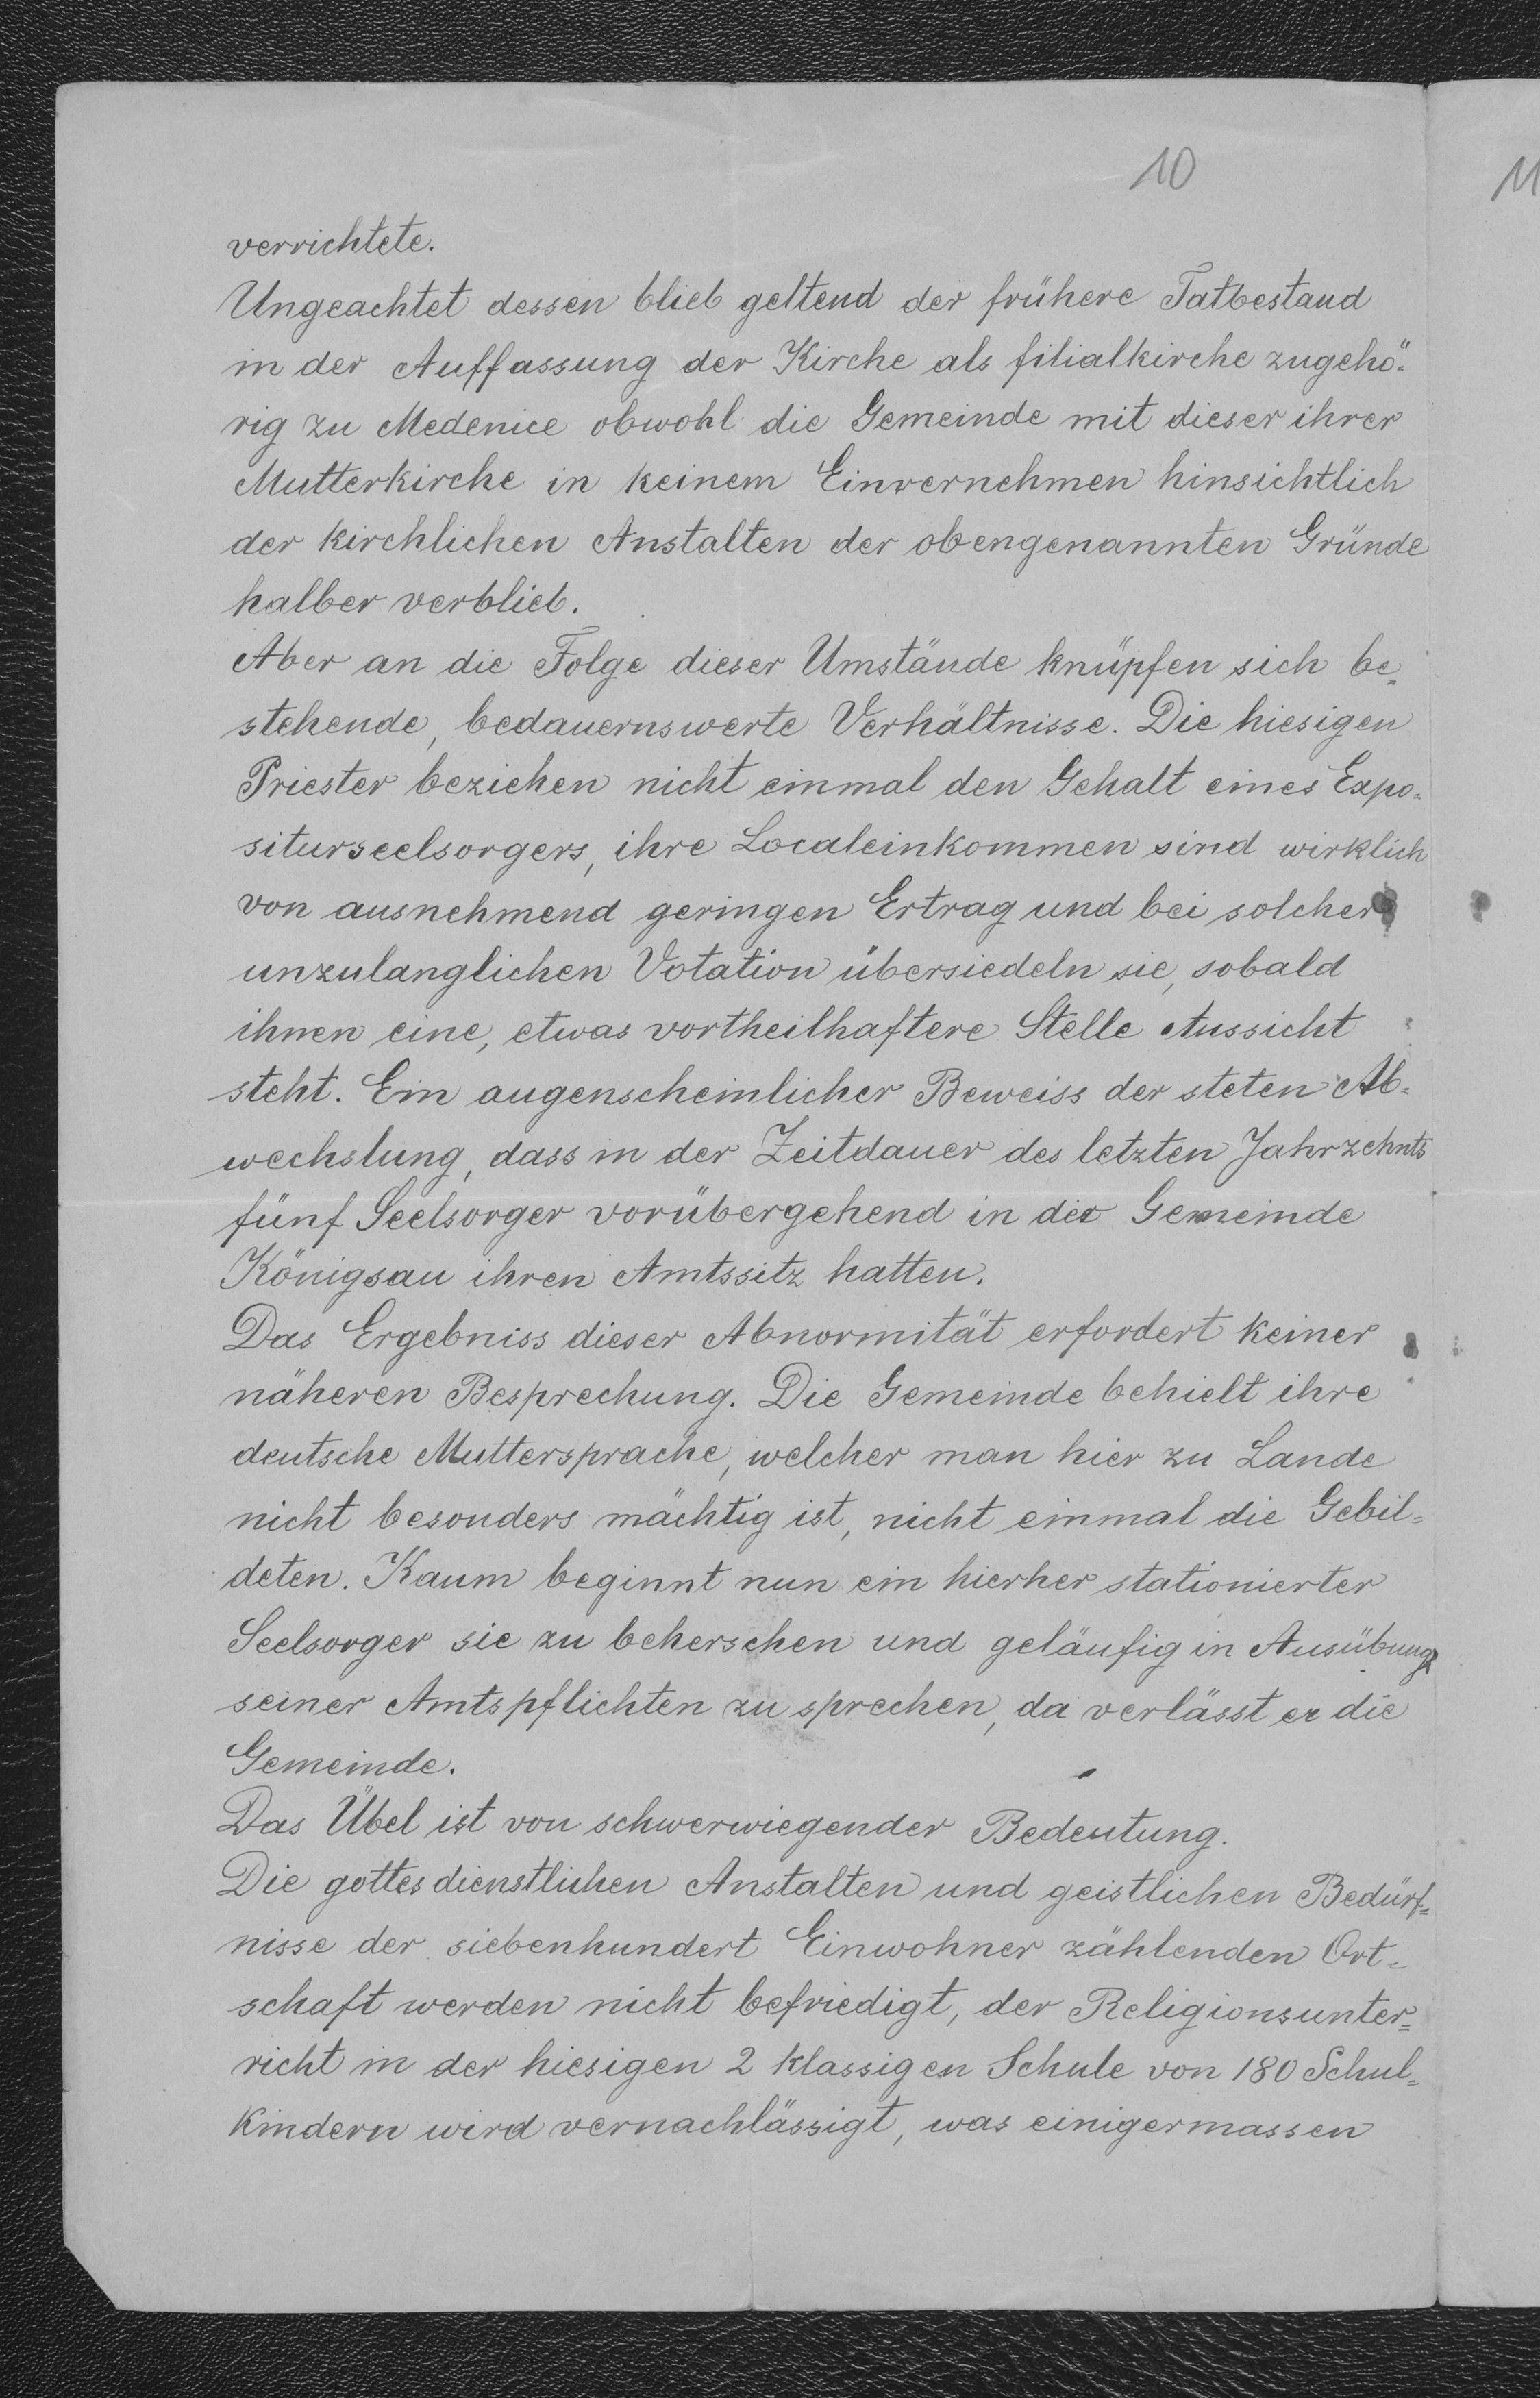 10
11
verrichtete.
Ungeachtet dessen blieb geltend der frühere Tatbestand
in der Auffassung der Kirche als filialkirche zugehö-
rig zu Medenice obwohl die Gemeinde mit dieser ihrer
Mutterkirche in keinem Einvernehmen hinsichtlich
der kirchlichen Anstalten der obengenannten Gründe
halber verblieb.
Aber an die Folge dieser Umstände knüpfen sich be-
stehende, bedauernswerte Verhältnisse. Die hiesigen
Priester beziehen nicht einmal den Gehalt eines Expo-
siturseelsorgers, ihre Localeinkommen sind wirklich
von ausnehmend geringen Ertrag und bei solcher
unzulanglichen Votation übersiedeln sie, sobald
ihnen eine, etwas vortheilhaftere Stelle Aussicht
steht. Ein augenscheinlicher Beweiss der steten Ab-
wechslung, dass in der Zeitdauer des letzten Jahrzehnts
fünf Seelsorger vorübergehend in der Gemeinde
Königsau ihren Amtssitz hatten.
Das Ergebniss dieser Abnormität erfordert keiner
näheren Besprechung. Die Gemeinde behielt ihre
deutsche Muttersprache, welcher man hier zu Lande
nicht besonders mächtig ist, nicht einmal die Gebil-
deten. Kaum beginnt nun ein hierher stationierter
Seelsorger sie zu beherschen und geläufig in Ausübung
seiner Amtspflichten zu sprechen, da verlässt er die
Gemeinde.
Das Übel ist von schwerwiegender Bedeutung.
Die gottesdienstlichen Anstalten und geistlichen Bedürf-
nisse der siebenhundert Einwohner zählenden Ort-
schaft werden nicht befriedigt, der Religionsunter-
richt in der hiesigen 2 klassigen Schule von 180 Schul-
kindern wird vernachlässigt, was einigermassen